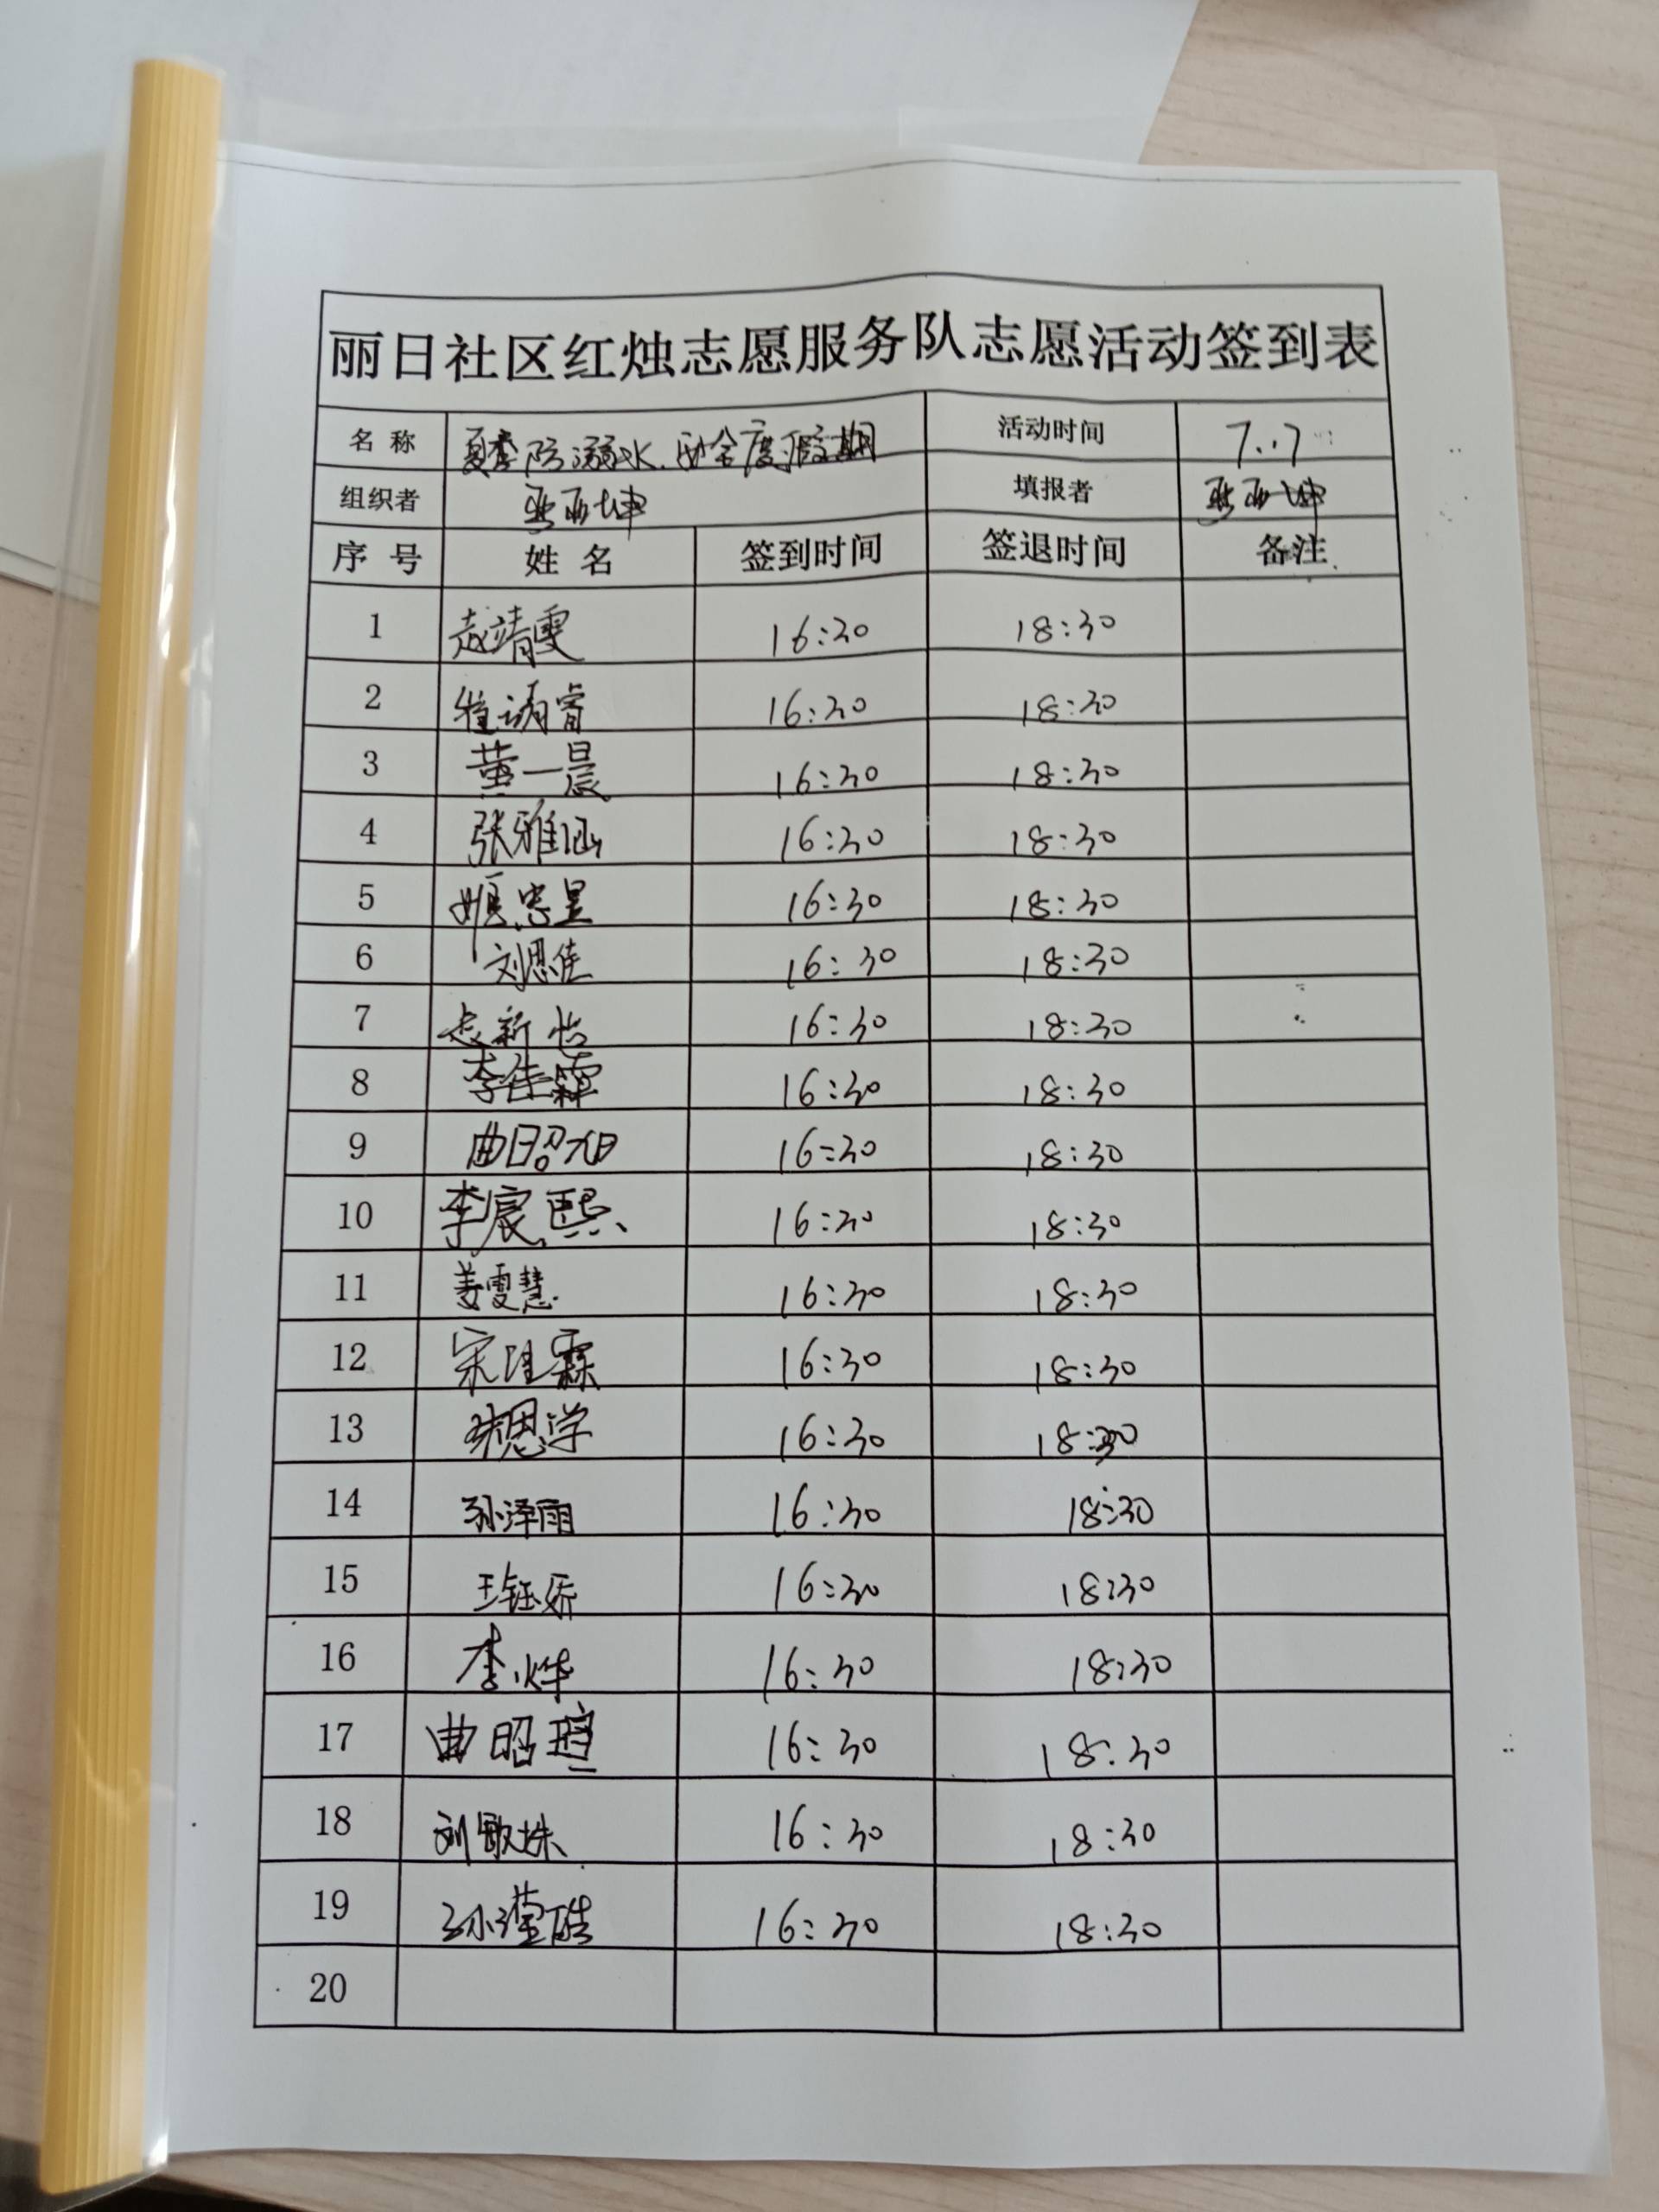 丽日社区红烛志愿服务队志愿活动签到表
名称 夏季防溺水.安全度假期 活动时间 7.7
组织者 填报者
序号 姓名 签到时间 签退时间 备注
1 赵靖雯 16:30 18:30
2 16:30 18:30
3 黄一晨 16:30 18:30
4 张雅涵 16:30 18:30
5 16:30 18:30
6 刘恩佳 16:30 18:30
7 16:30 18:30
8 李佳霖 16:30 18:30
9 曲昭旭 16:30 18:30
10 李宸熙 16:30 18:30
11 姜雯慧 16:30 18:30
12 16:30 18:30
13 16:30 18:30
14 孙泽雨 16:30 18:30
15 王钰娇 16:30 18:30
16 李烨 16:30 18:30
17 曲昭瑄 16:30 18:30
18 16:30 18:30
19 16:30 18:30
20